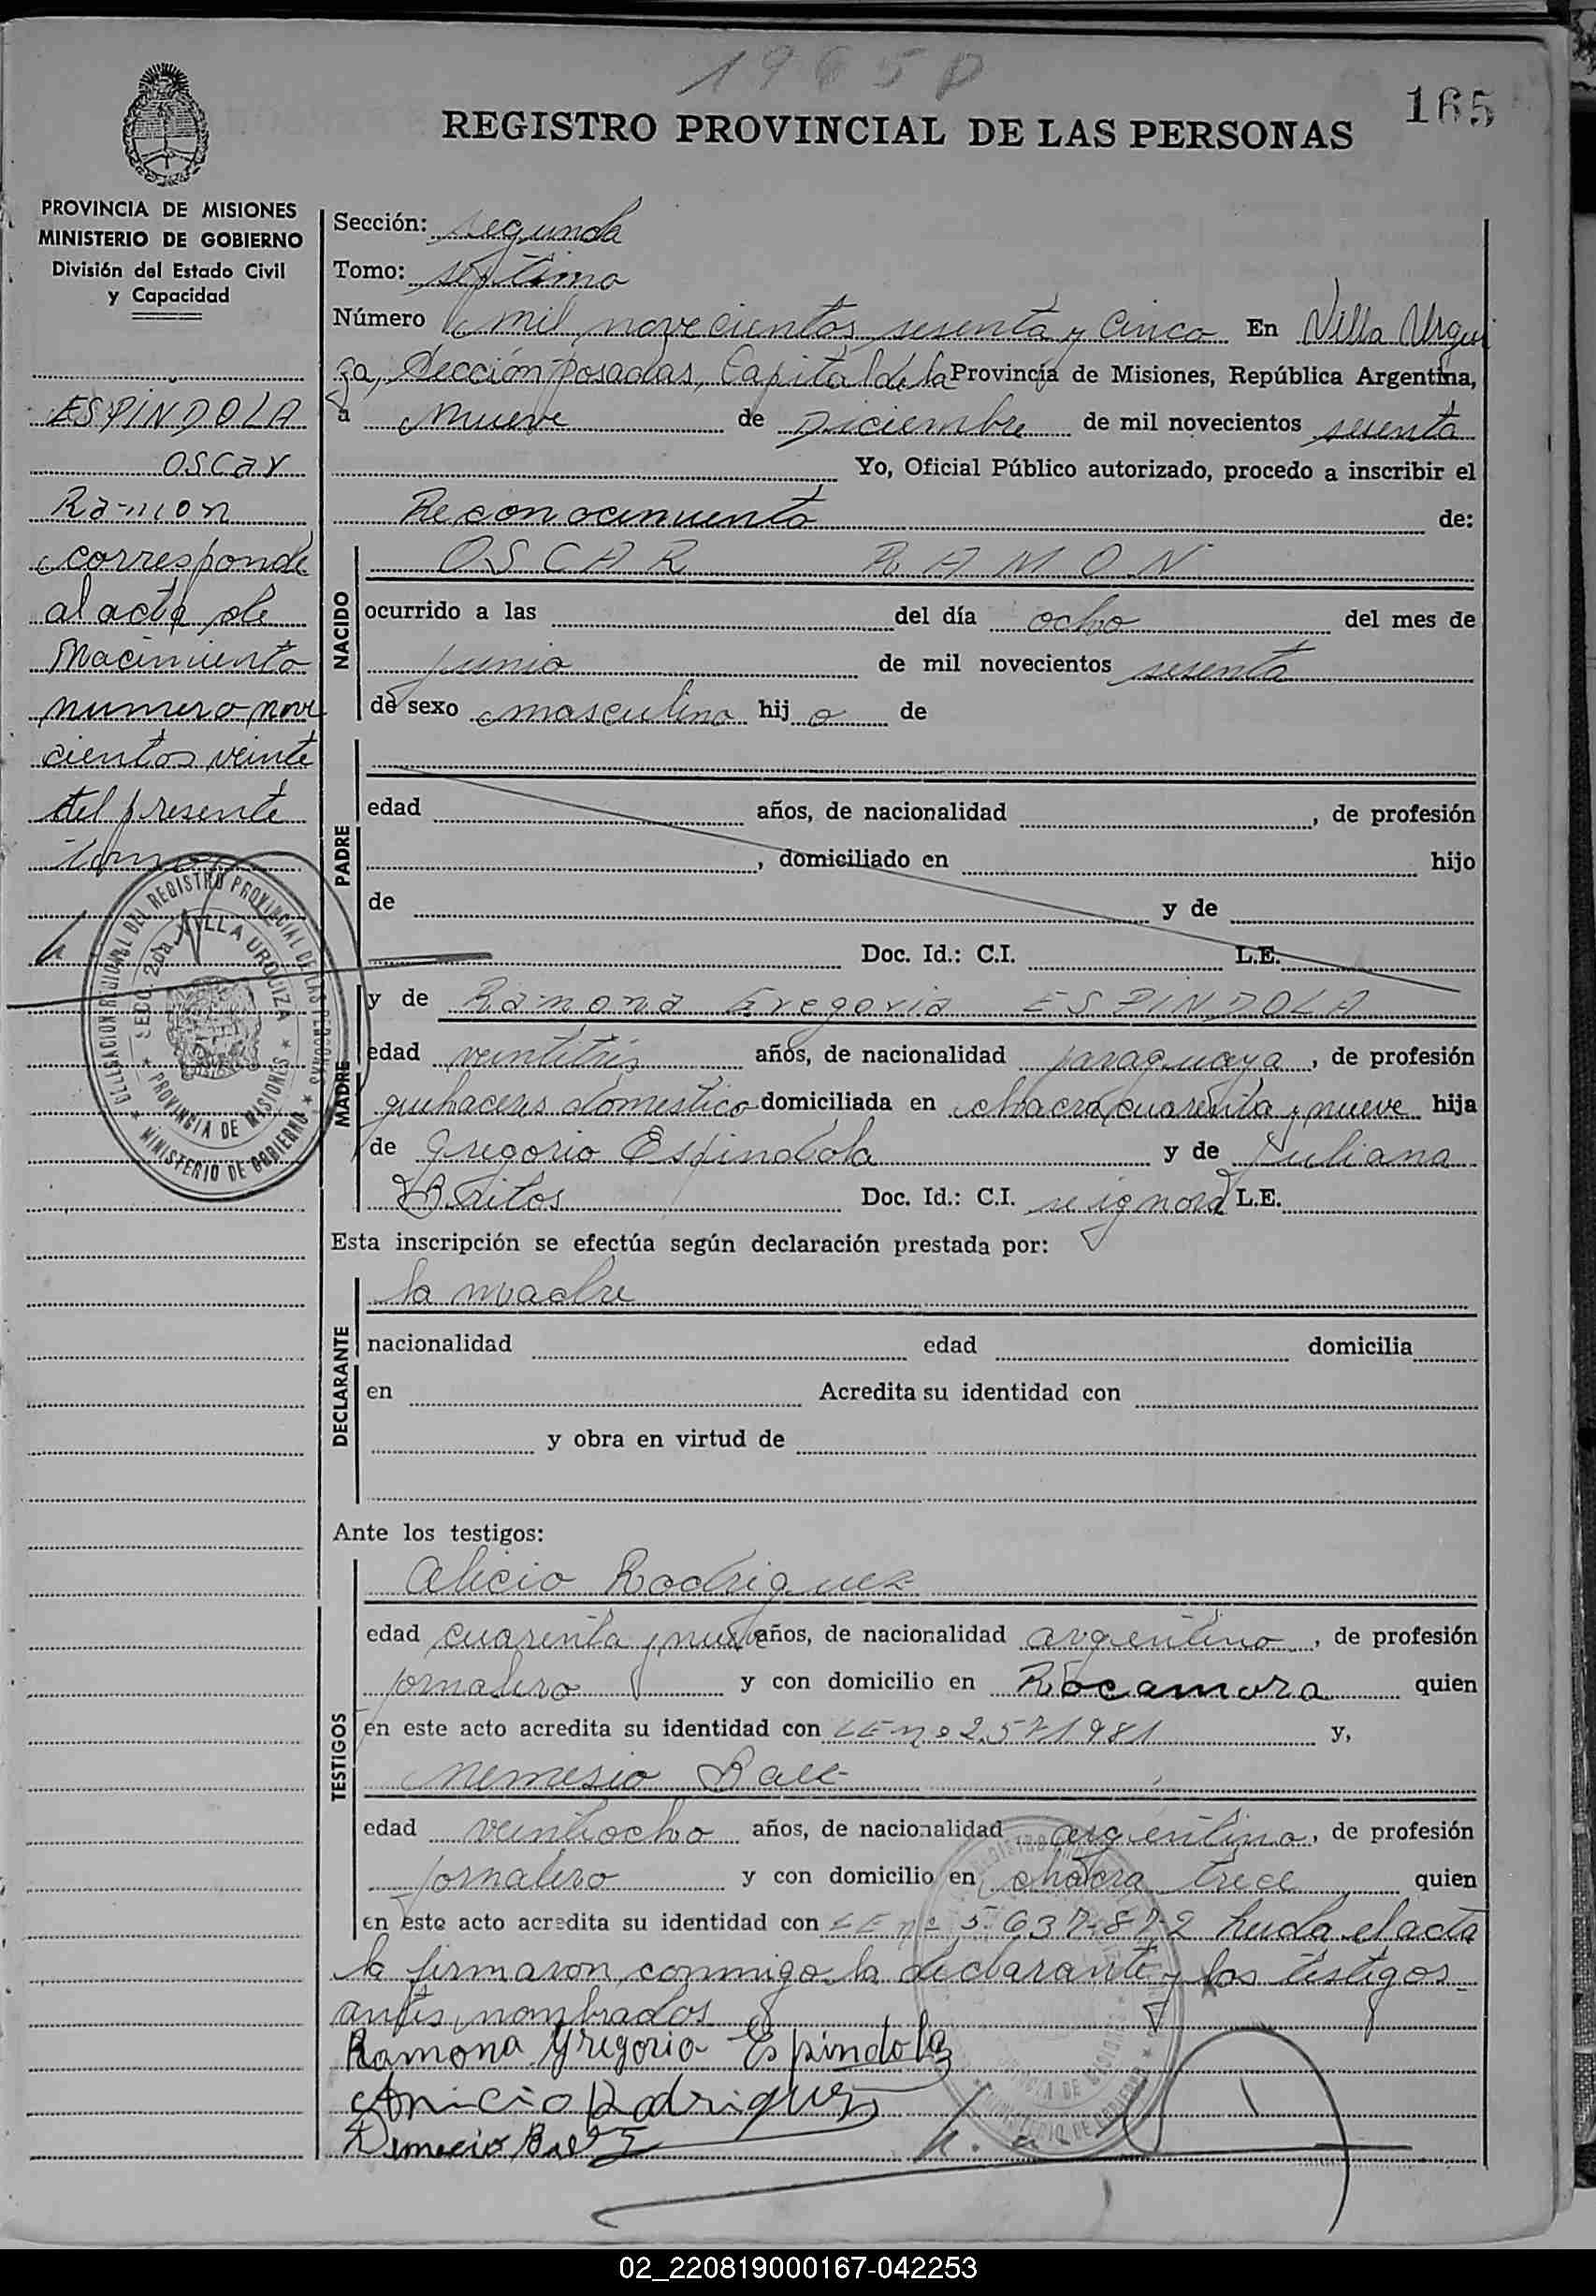 1965 D
165
REGISTRO PROVINCIAL DE LAS PERSONAS
PROVINCIA DE MISIONES
MINISTERIO DE GOBIERNO
División del Estado Civil
y Capacidad
ESPINDOLA
Oscar
Ramon
corresponde
al acta de
Nacimiento
numero nove
cientos veinte
del presente
tomo
DELEGACION REGIONAL DEL REGISTRO PROVINCIAL DE LAS PERSONAS
SECC. 2da VILLA URQUIZA
PROVINCIA DE MISIONES
MINISTERIO DE GOBIERNO
Sección: segunda
Tomo: séptimo
Número mil novecientos sesenta y cinco En Villa Urqui
za, Sección Posadas, Capital de la Provincia de Misiones, República Argentina,
a nueve de Diciembre de mil novecientos sesenta
Yo, Oficial Público autorizado, procedo a inscribir el
Reconocimiento de:
NACIDO
OSCAR RAMON
ocurrido a las del día ocho del mes de
junio de mil novecientos sesenta
de sexo masculino hij o de
PADRE
edad años, de nacionalidad , de profesión
, domiciliado en hijo
de y de
Doc. Id.: C.I. L.E.
MADRE
y de Ramona Gregoria ESPINDOLA
edad veintitrés años, de nacionalidad paraguaya, de profesión
quehaceres domestico domiciliada en chacra cuarenta y nueve hija
de Gregorio Espindola y de Juliana
Britos Doc. Id.: C.I. se ignora L.E.
Esta inscripción se efectúa según declaración prestada por:
DECLARANTE
la madre
nacionalidad edad domicilia
en Acredita su identidad con
y obra en virtud de
Ante los testigos:
TESTIGOS
Alicio Rodriguez
edad cuarenta y nueve años, de nacionalidad argentino, de profesión
jornalero y con domicilio en Rocamora quien
en este acto acredita su identidad con LE nº 2.571981 y,
Nemesio Baez
edad veintiocho años, de nacionalidad argentino, de profesión
jornalero y con domicilio en chacra trece quien
en este acto acredita su identidad con LE nº 5.637.872 leida el acta
la firmaron conmigo la declarante y los testigos
antes nombrados
Ramona Gregoria Espindola
Anicio Rodriguez
Nemecio Baez
02_220819000167-042253